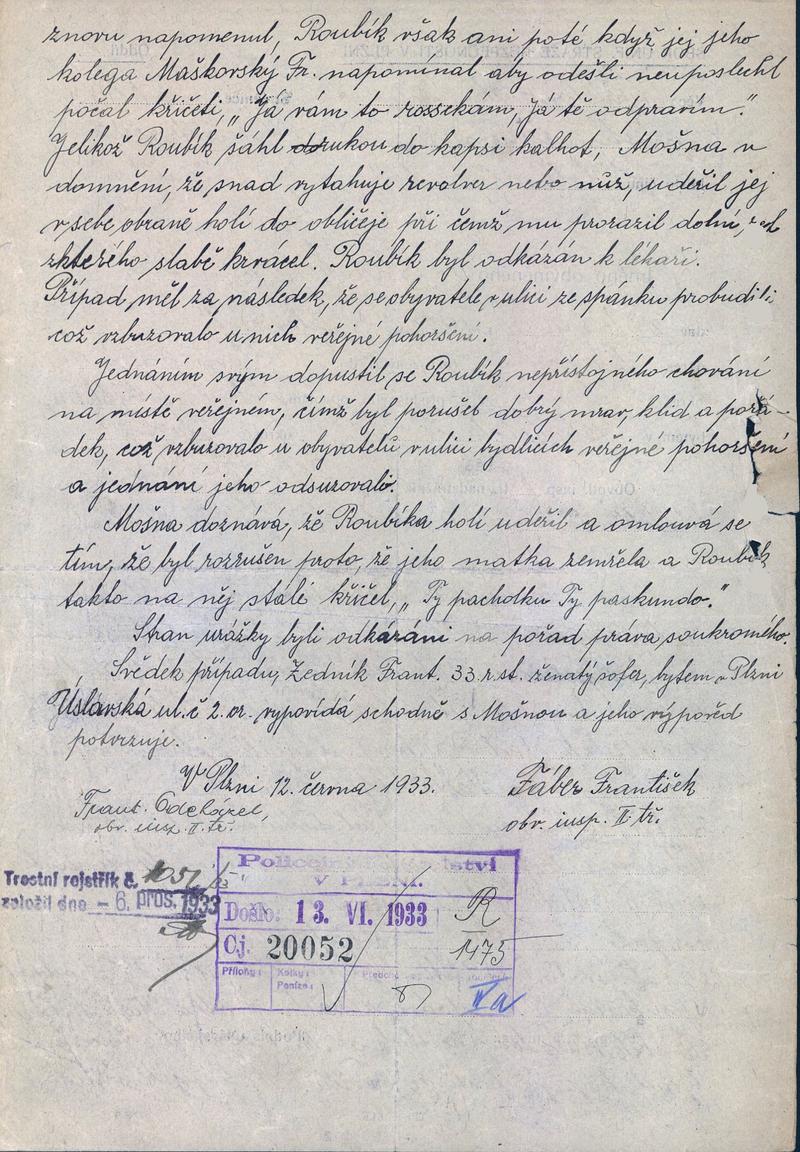 znovu napomenul, Roubík však ani poté když jej jeho
kolega Maškovský Fr. napomínal aby odešli neuposlechl
počal křičeti „Já vám to rossekám, Já tě odpravím.“
Jelikož Roubík šáhl rukou do kapsi kalhot, Mošna v
domnění, že snad vytahuje revolver nebo nůž, udeřil jej
v sebe obraně holí do obličeje při čemž mu prorazil dolní
kterého slabě krvácel. Roubík byl odkázán k lékaři.
Případ měl za následek, že se obyvatele v ulici ze spánku probudili
což vzbuzovalo u nich veřejné pohoršení.
Jednáním svým dopustil se Roubík nepřístojného chování
na místě veřejném, čímž byl porušen dobrý mrav, klid a pořá-
dek, což vzbuzovalo u obyvatelů v ulici bydlících veřejné pohoršení
a jednání jeho odsuzovali.
Mošna doznává, že Roubíka holí udeřil a omlouvá se
tím, že byl rozrušen proto, že jeho matka zemřela a Roubík
takto na něj stále křičel, „Ty pacholku Ty paskundo.“
Stran urážky byli odkázáni na pořad práva soukromého.
Svědek případu, Zedník Frant. 33 r. st. ženatý šofer, bytem v Plzni
Úslavská ul. č 2. vypovídá schodně s Mošnou a jeho výpověd
potvrzuje.
V Plzni 12. června 1933.
Fáber František
obv. insp. II. tř.
Frant.
obv. insp. II. tř.
Trestní rejstřík č. 1051/33
založil dne - 6. pros. 1933
Policejní ředitelství
V PLZNI.
Došlo: 13. VI. 1933
R
1475
Čj. 20052
Přílohy:
Kolky:
Peníze:
IVa